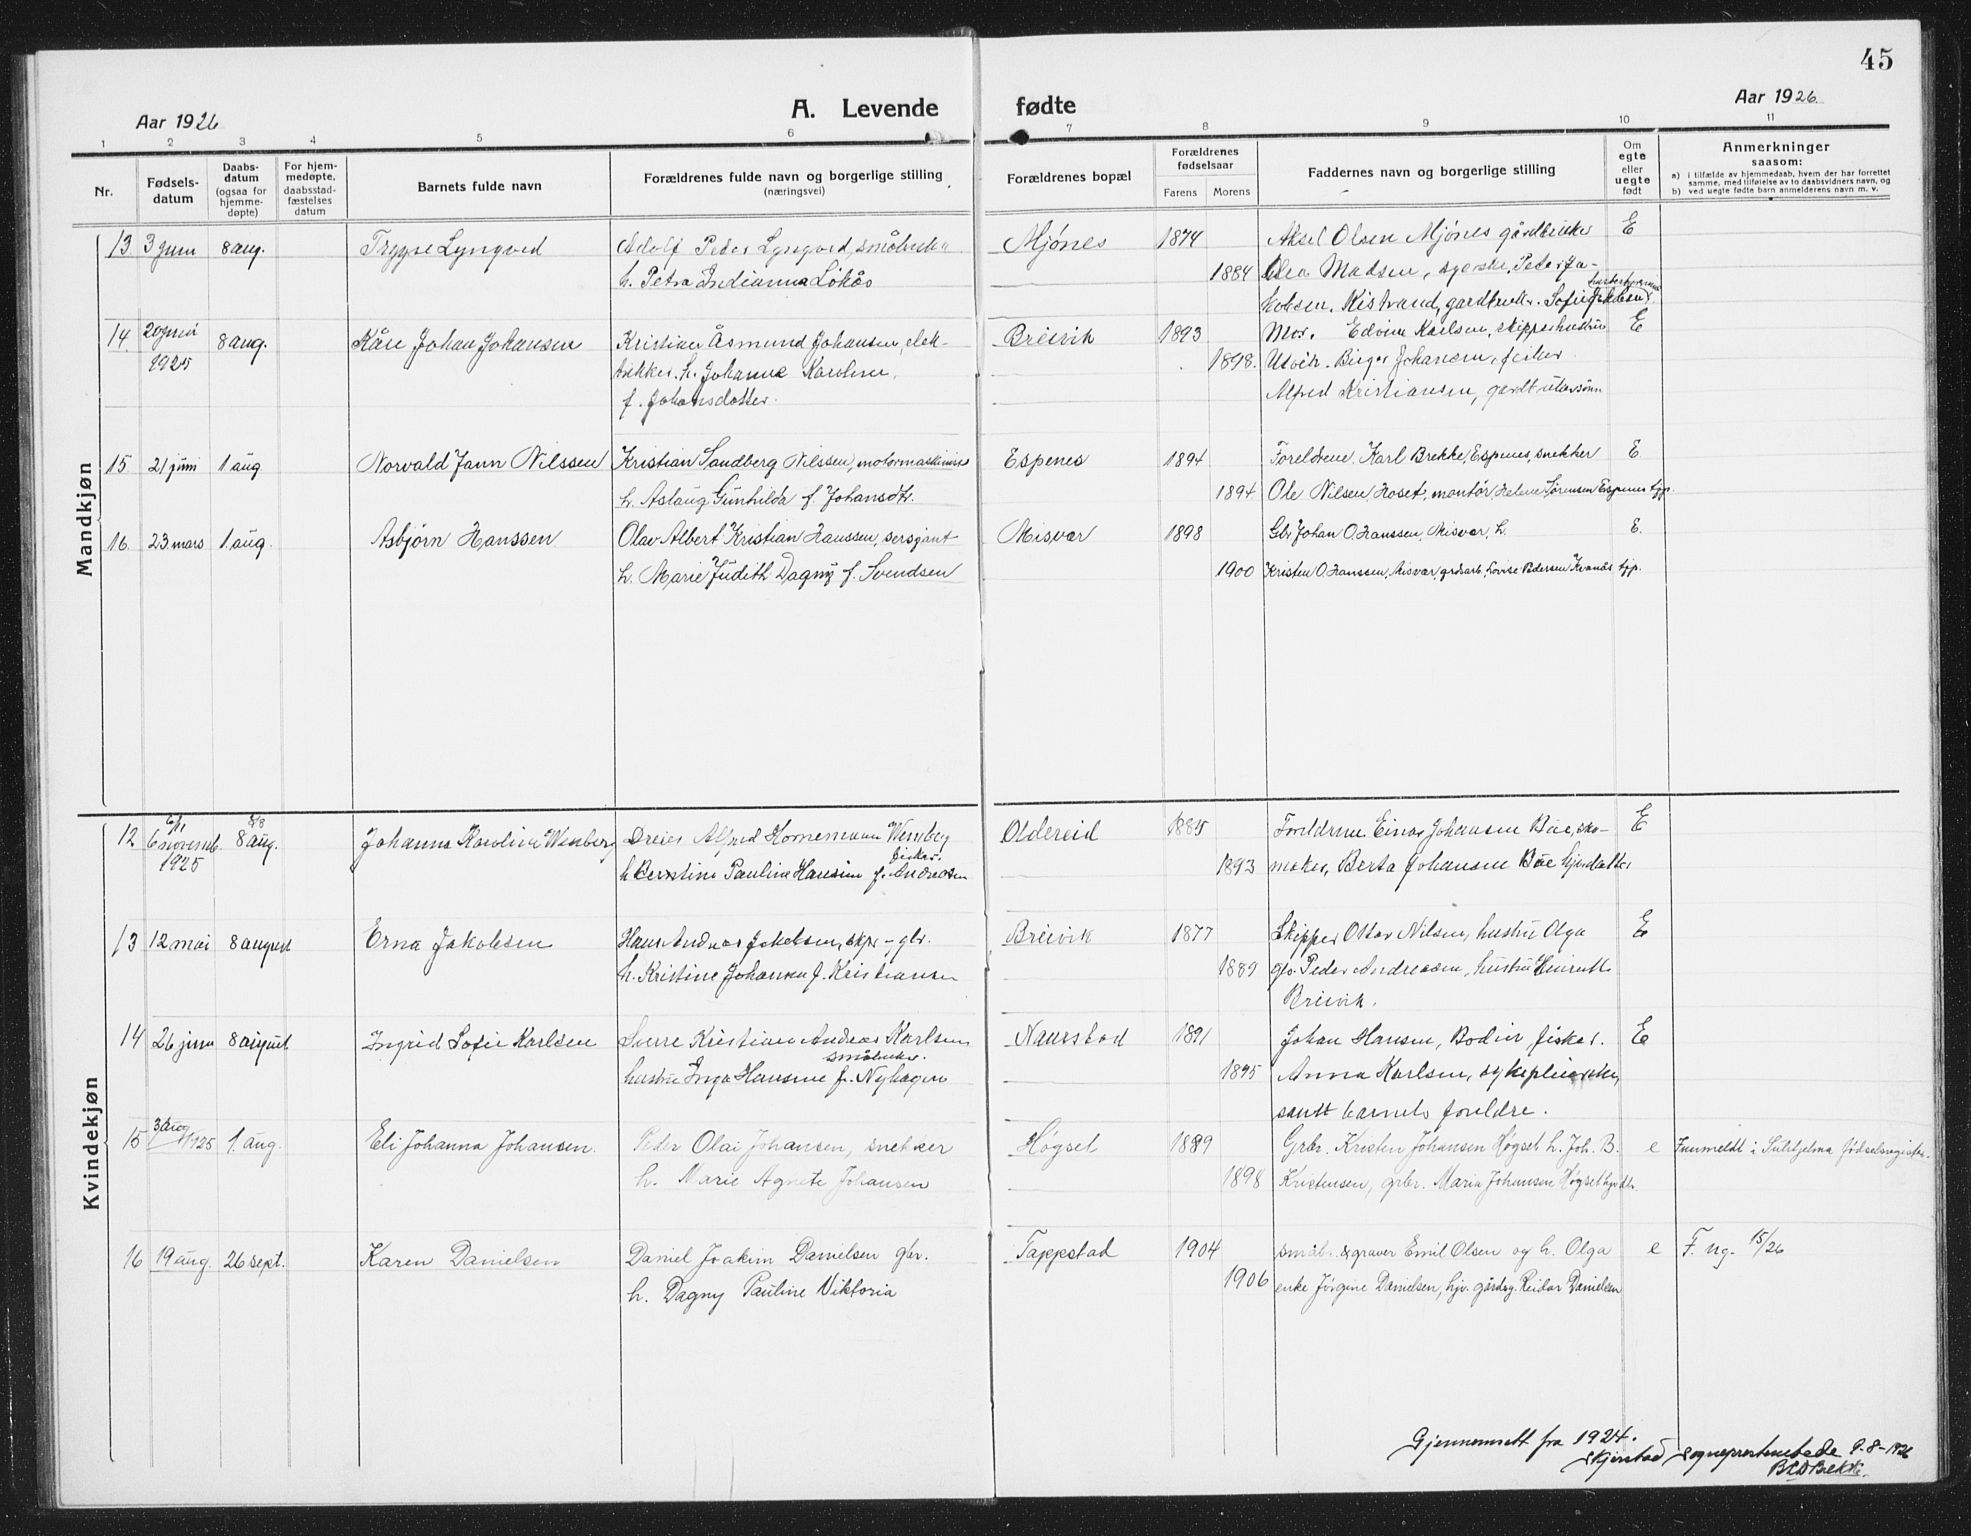 45
Aar 1926
A. Levende
fødte
Aar 1926
1 2 3 4 5 6 7 8 9 10 11
Nr.
Fødsels-
datum
Daabs-
datum
(ogsaa for
hjemme-
døpte)
For hjem-
medøpte,
daabsstad-
fæstelses
datum
Barnets fulde navn
Forældrenes fulde navn og borgerlige stilling
(næringsvei)
Forældrenes bopæl
Forældrenes
fødselsaar
Farens Morens
Faddernes navn og borgerlige stilling
Om
egte
eller
uegte
født
Anmerkninger
saasom:
a) i tilfælde av hjemmedaab, hvem der har forrettet
samme, med tilføielse av to daabsvidners navn, og
b) ved uegte fødte barn anmelderens navn m. v.
Mandkjøn
13 3 juni 8 aug. Trygve Lyngved Adolf Peder Lyngved, småbruker Mjónes 1874 Aksel Olsen Mjónes gårdbruker E
h. Petra Indianna Løkås 1884 Madsen, Peder Ja-
kobsen, Kistrand, gardbruk. Sofie Jakobsen
14 20 juni 8 aug. Kåre Johan Johansen Kristian Åsmund Johansen, elek- Breivik 1893 Mor. Edvine Karlsen, skipperhustru E
1925 h. Johanne Karoline 1898. Utvik. Birger Johansen, fisker.
f. Johansdatter. Alfred Kristiansen,
15 21 juni 1 aug Norvald Jann Nilssen Kristian Sandberg Nilssen, motormaskinist Espenes 1894 Foreldrene. Karl Brekke, Espenes, snekker E
h. Aslaug Gunhilda f. Johansdt. 1894 Ole Nilsen Hoset, montör, Helene Sørensen Espenes tjp.
16 23 mars 1. aug. Asbjørn Hanssen Olav Albert Kristian Hanssen, sersjant Misvær 1898 Gbr Johan O. Hanssen, Misvær, h. E.
h. Marie Judith Dagny f. Svendsen 1900 Kristen O. Hanssen, Misvær, grdarb, Lovise Pedersen Kvanås tjp.
Kvindekjøn
12 6 novemb. 8 aug. Johanna Karoline Wensberg Dreier Alfred Hornemann Wensberg Oldereid 1885 Foreldrene Einar Johansen Bøe, sko- E
1925 fisker.
h. Pauline Hansine f. Andreasen 1893 maker, Berta Johansen Bøe hjvdatter
13 12 mai 8 august Erna Jakobsen Hans Andreas Jakobsen, skpr - gbr. Breivik 1877 Skipper Ottar Nilsen, hustru Olga E
h. Kristine Johanna f. Kristiansen 1889 gbr. Peder Andreasen, hustru
Breivik.
14 26 juni 8 august Ingrid Sofie Karlsen Sverre Kristian Andreas Karlsen Naurstad 1891 Johan Hansen, Bodin, fisker. E
småbruker.
hustru Inga Hansine f. Nyhagen 1895 Anna Karlsen, sykepleierske,
samt barnets foreldre.
15 3 aug 1925 1. aug. Eli Johanna Johansen. Peder Olai Johansen, snekker Høgset 1889 Grbr. Kristen Johansen Høgset h. Joh. B. e Innmeldt i Sulitjelma fødselsregister.
h. Marie Agnete Johansen 1898 Kristensen, grbr. Maria Johansen Høgset hjvdtr.
16 19 aug. 26 sept. Karen Danielsen Daniel Joakim Danielsen gbr. Tappstad 1904 småbr. & graver Emil Olsen og h. Olga e F. ng. 15/26
h. Dagny Pauline Viktoria 1906 enke Jörgine Danielsen, hjv. gårdsg. Reidar Danielsen
Gjennemsett fra 1924.
Skjerstad sogneprestembede 9-8-1926